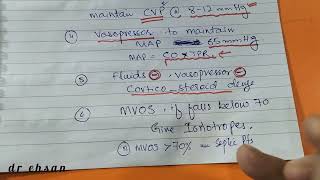 maintain CVP @ 8-12 mmHg
④ Vasopressor to maintain
MAP 65 mmHg
MAP = CO x TPR
⑤ Fluids ⊖ . Vasopressor ⊖
Cortico-steroid
⑥ MVOS if falls below 70
Give Ionotropes.
MVOS >70% Septic Pts
dr ehsan